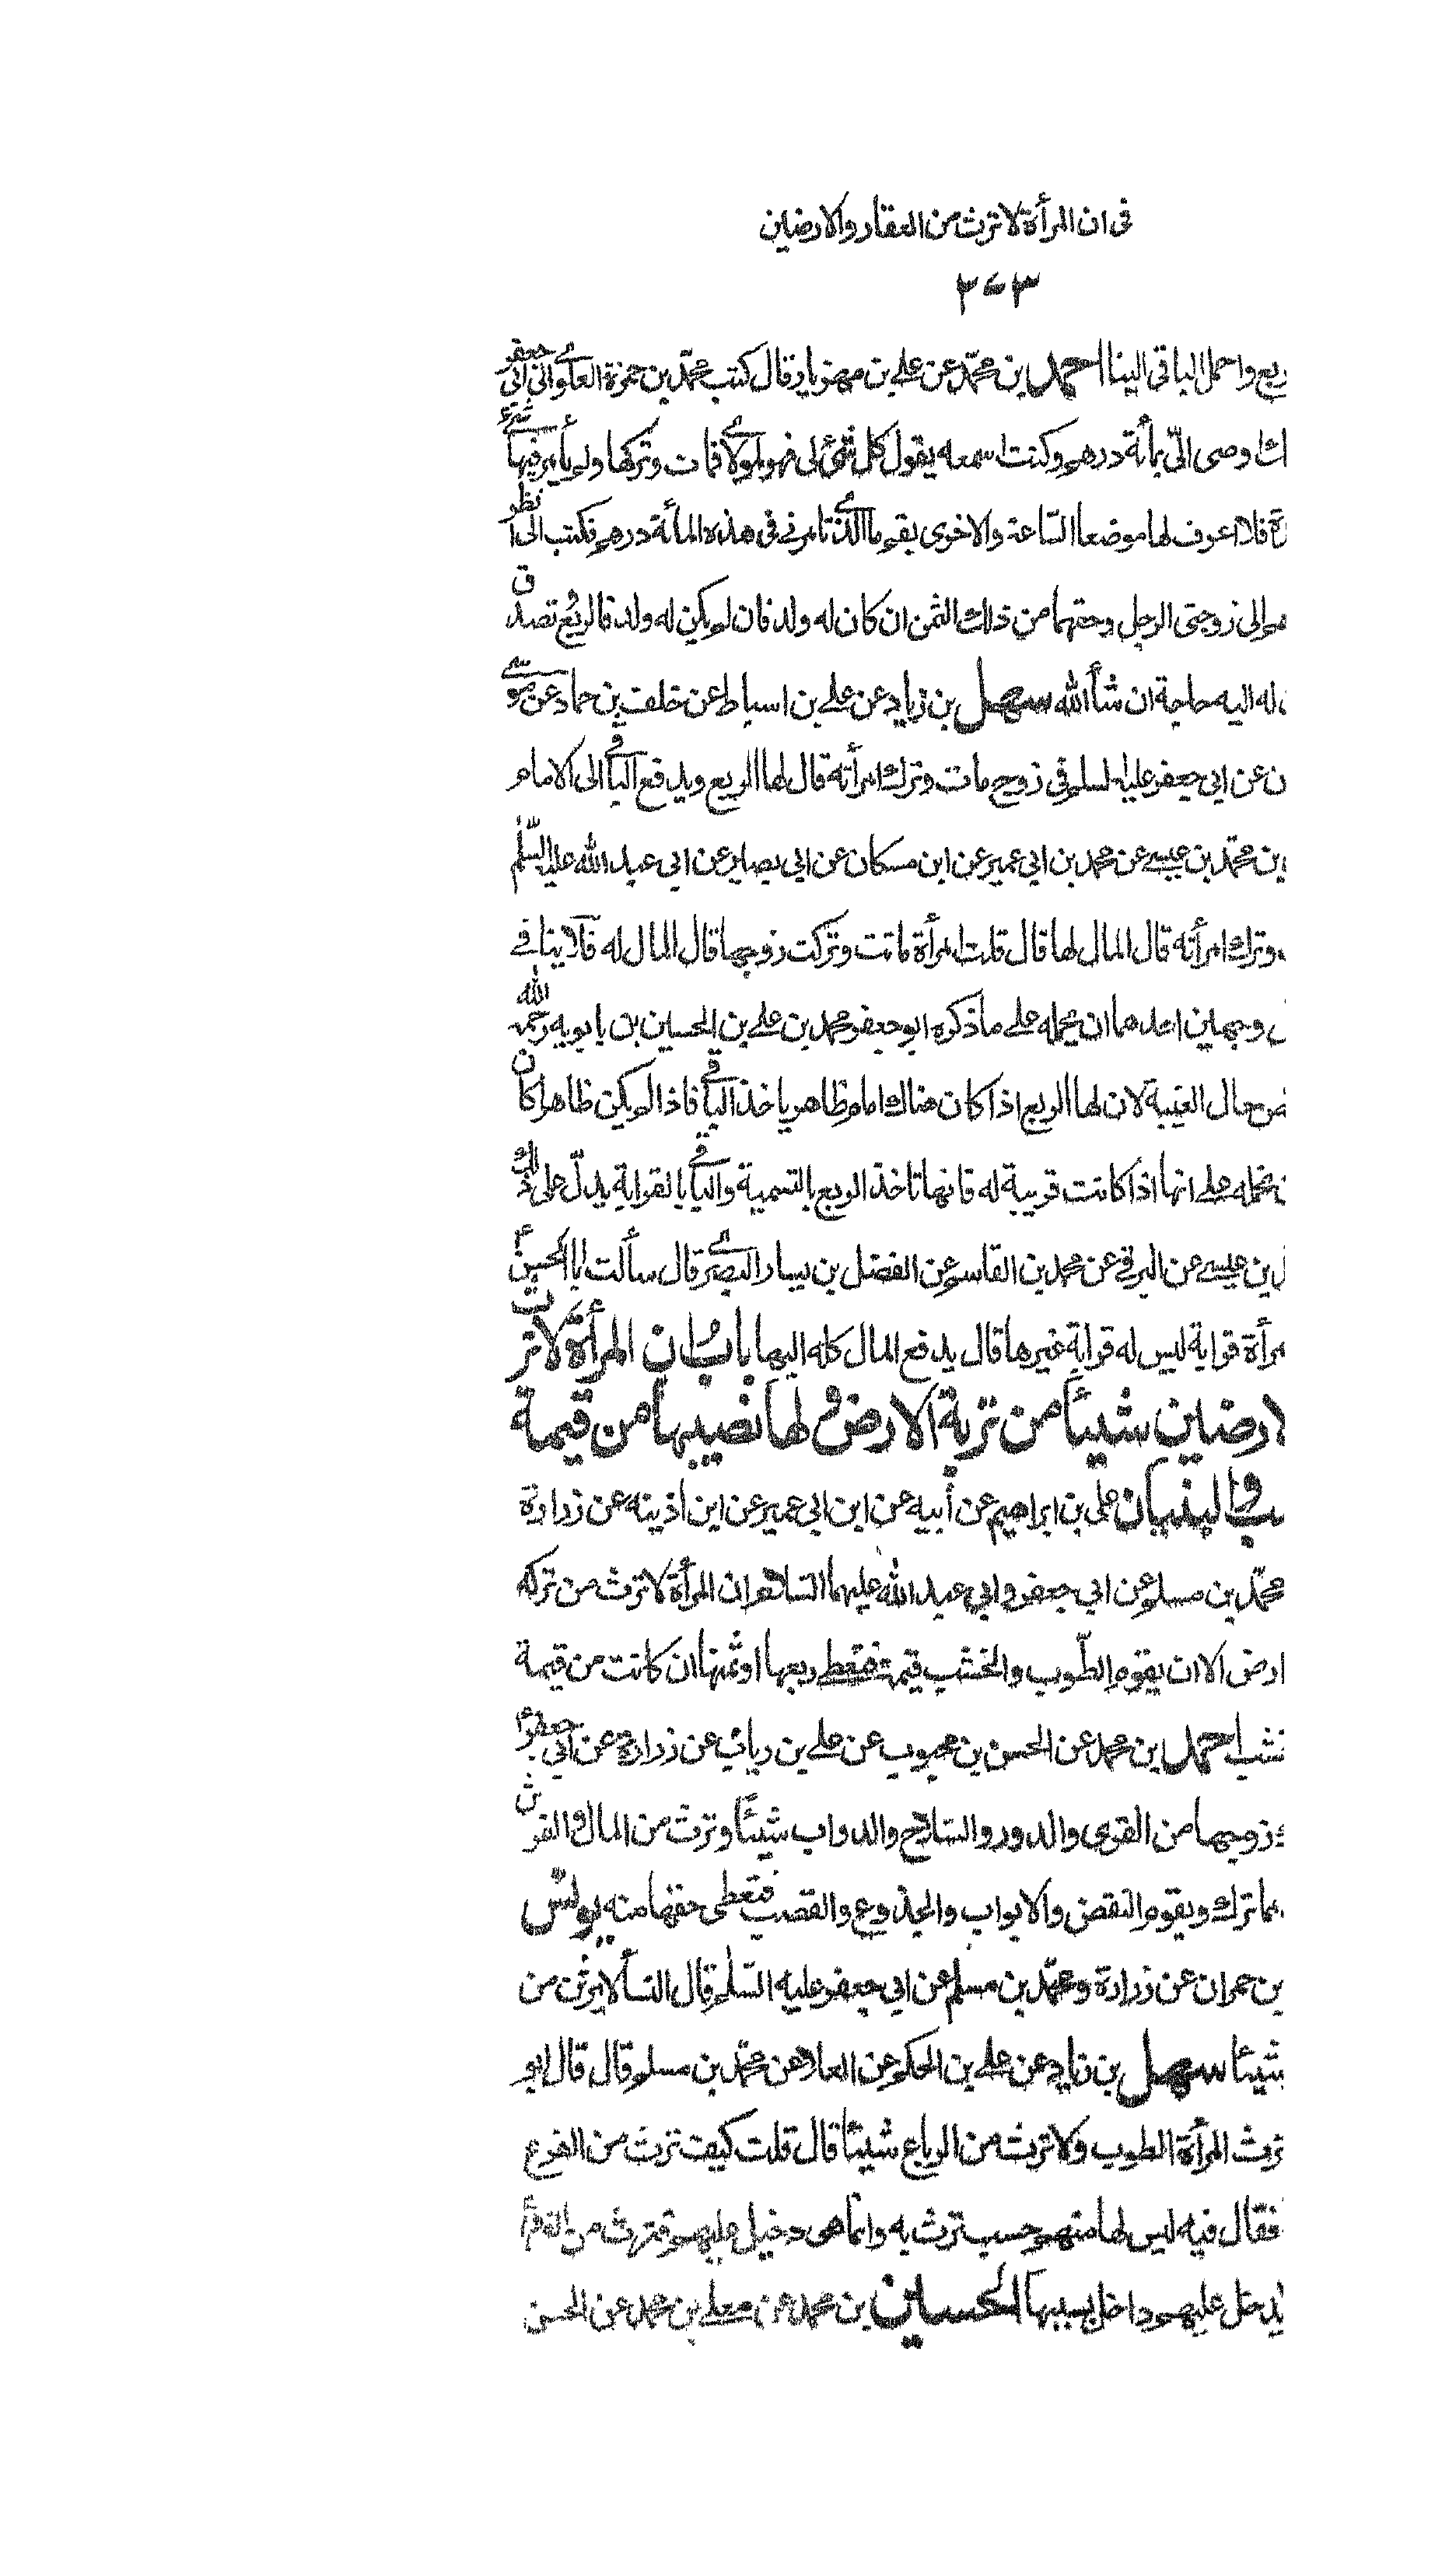 فى ان المرأة لا ترث من العقار والارضين
٣٧٣
ربع واحمل الباقى الينا احمد بن محمّد عن على بن مهزيار قال كتب محمّد بن حمزة العلوى الى ابى جعفر
اوصى الىّ بمائة درهم وكنت اسمعه يقول كل شئ لى فهو لمولاى فمات وتركها ولم يأمر فيها بشئ
فلا اعرف لها موضعا السّاعة والاخرى بقم ما الذى تامرنى فى هذه المأة درهم فكتب الى انظر
الى زوجتى الرجل وحقهما من ذلك الثمن ان كان له ولد فان لم يكن له ولد فالربع تصدق
له اليه حاجة ان شأ الله سهل بن زياد عن على بن اسباط عن خلف بن حماد عن موسى
ن عن ابى جعفر عليه لسلم فى زوج مات وترك امرأته قال لها الربع ويدفع الباقى الى الامام
بن محمّد بن عيسى عن محمد بن ابى عمير عن ابن مسكان عن ابى بصير عن ابى عبد الله عليه السّلم
وترك امرأته قال المال لها قال قلت امرأة ماتت وتركت زوجها قال المال له فلا ينافى
وجهين احدهما ان يحمله على ما ذكره ابو جعفر محمد بن على بن الحسين بن بابويه رحمه الله
من حال الغيبة لان لها الربع اذا كان هناك امام ظاهر ياخذ الباقى فاذا لم يكن ظاهرا كان
نحمله على انها اذا كانت قريبة له فانها تاخذ الربع بالتسمية والباقى بالقرابة يدلّ على ذلك
بن عيسى عن البرقى عن محمد بن القاسم عن الفضل بن يسار البصرى قال سألت ابا الحسن ع
مرأة قرابة ليس له قرابة غيرها قال يدفع المال كله اليها باب ان المرأة لا ترث
لارضين شيئا من تربة الارض ولها نصيبها من قيمة
ب والبنيان على بن ابراهيم عن أبيه عن ابن ابى عمير عن ابن اذينه عن زرارة
محمّد بن مسلم عن ابى جعفر وابى عبد الله عليهما السلام ان المرأة لا ترث من تركه
ارض الا ان يقوم الطّوب والخشب قيمة فتعطى ربعها او ثمنها ان كانت من قيمة
خشب احمد بن محمد عن الحسن بن محبوب عن على بن رياب عن زرارة عن ابى جعفر ع
زوجها من القرى والدور والسّلاح والدواب شيئا وترث من المال والفرش
مما ترك ويقوم النقض والابواب والجذوع والقصب فتعطى حقها منه يونس
بن حمران عن زرارة ومحمّد بن مسلم عن ابى جعفر عليه السّلم قال النسأ لا يرثن من
شيئا سهل بن زياد عن على بن الحكم عن العلا عن محمّد بن مسلم قال قال ابو
ترث المرأة الطوب ولا ترث من الرباع شيئا قال قلت كيف ترث من الفرع
فقال فيه ليس لها منهم حسب ترث به وانما هى دخيل عليهم فترث من الفرع
يدخل عليهم داخل بسببها الحسين بن محمد عن معلى بن محمد عن الحسن